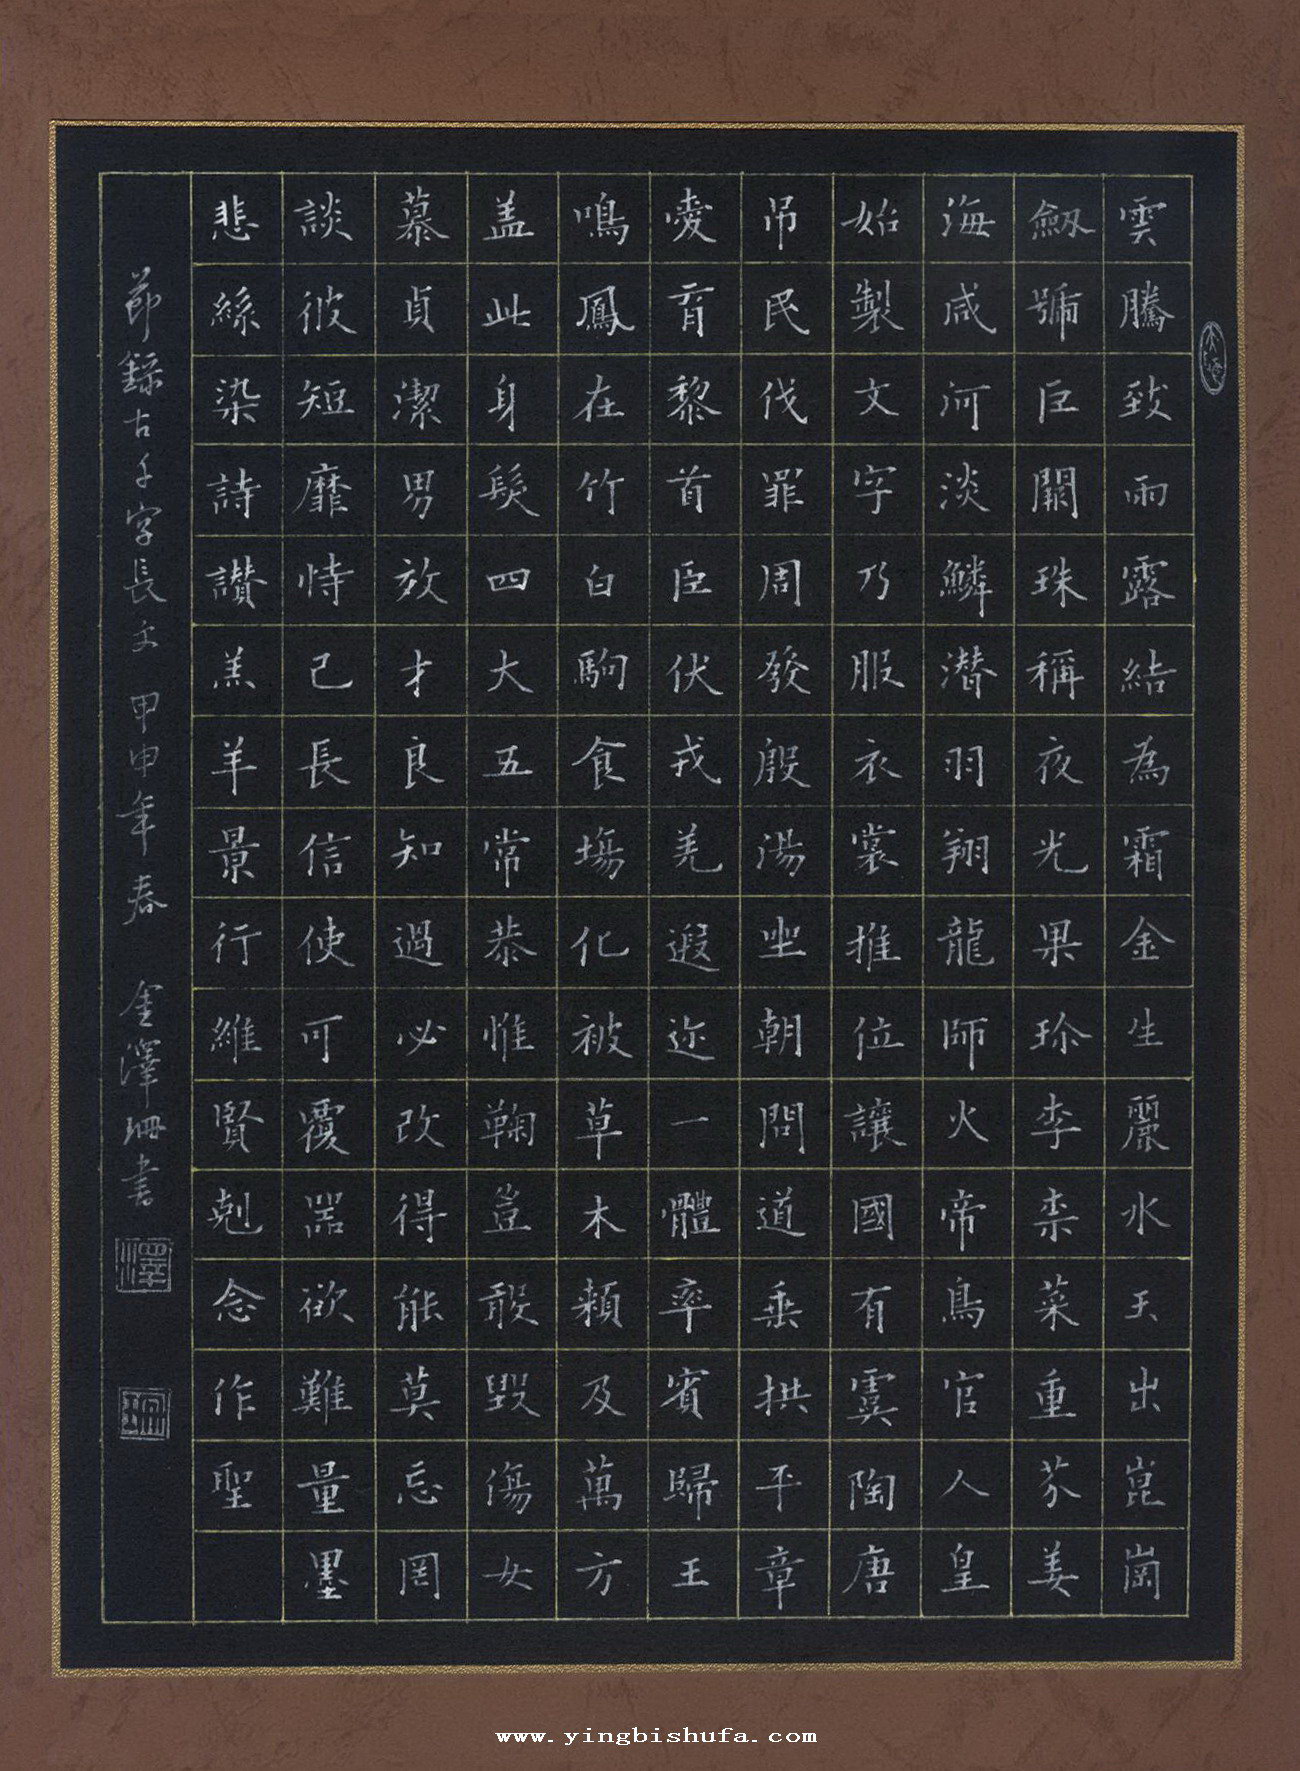 雲騰致雨露結為霜金生麗水玉出崑崗
劔號巨闕珠稱夜光果珎李柰菜重芥姜
海咸河淡鱗潜羽翔龍師火帝鳥官人皇
始製文字乃服衣裳推位讓國有虞陶唐
吊民伐罪周發殷湯坐朝問道垂拱平章
愛育黎首臣伏戎羌遐迩一體率賓歸王
鳴鳳在竹白駒食場化被草木賴及萬方
盖此身髮四大五常恭惟鞠豈敢毀傷女
慕貞潔男放才良知過必改得能莫忘罔
談彼短靡恃己長信使可覆器欲難量墨
悲絲染詩讃羔羊景行維賢剋念作聖
節録古千字長文 甲申年春 金澤珊書
澤
珊
www.yingbishufa.com